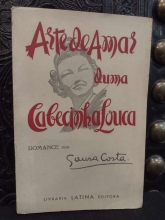 Arte de Amar
duma
Cabecinha Louca
ROMANCE POR
Laura Costa
LIVRARIA LATINA EDITORA